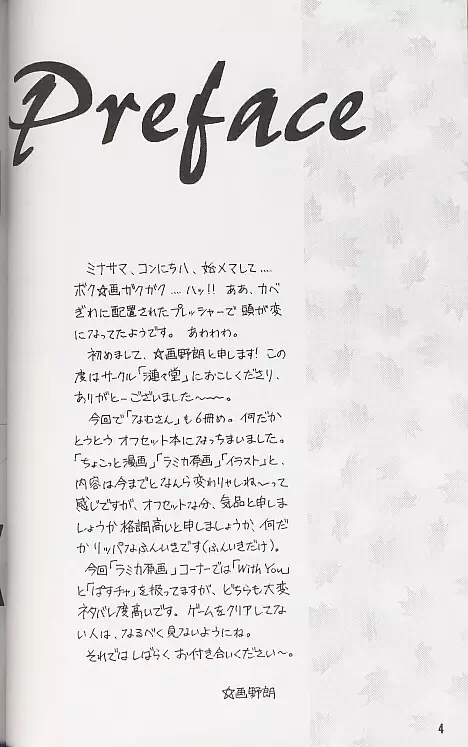 Preface
ミナサマ、コンにち八、始メマして‥‥
ボク☆画ガクガク‥‥ハッ!! ああ、カベ
ぎわに配置されたプレッシャーで頭が変
になってたようです。あわわわ。
初めまして、☆画野朗と申します! この
度はサークル「漣々堂」におこしくださり、
ありがとーございました〜〜〜。
今回で「なむさん」も6冊め。何だか
とうとうオフセット本になっちまいました。
「ちょこっと漫画」「ラミカ原画」「イラスト」と、
内容は今までとなんら変わりゃしね〜って
感じですが、オフセットな分、気品と申しま
しょうか格調高いと申しましょうか、何だ
かリッパなふんいきです(ふんいきだけ)。
今回「ラミカ原画」コーナーでは「With You」
と「ぱすチャ」を扱ってますが、どちらも大変
ネタバレ度高いです。ゲームをクリアしてな
い人は、なるべく見ないようにね。
それではしばらくお付き合いください〜。
☆画野朗
4